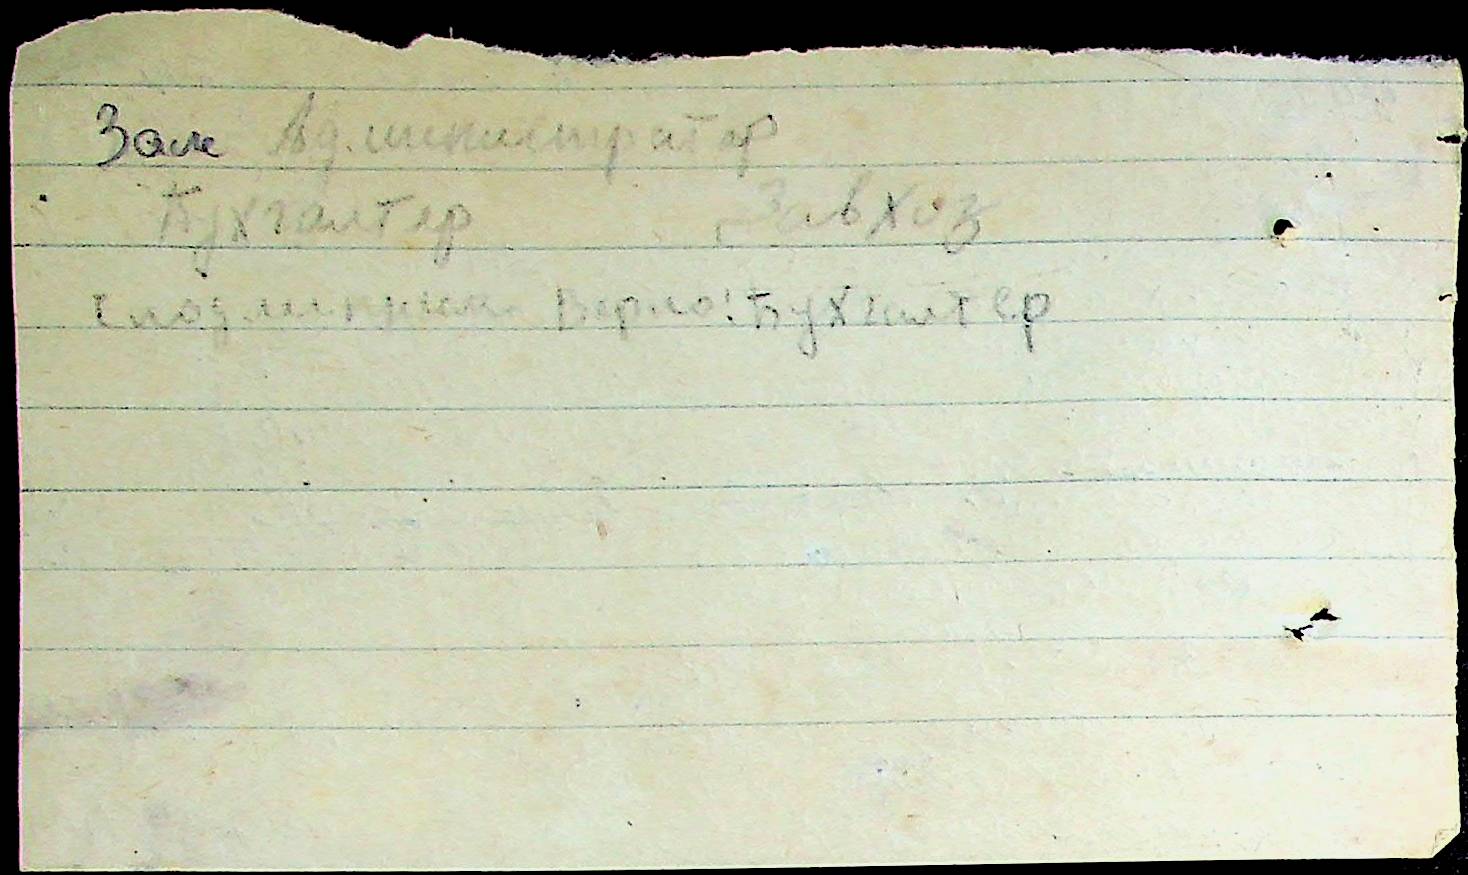 Зам Администратор
Бухгалтер Завхоз
С подлинным Верно: Бухгалтер